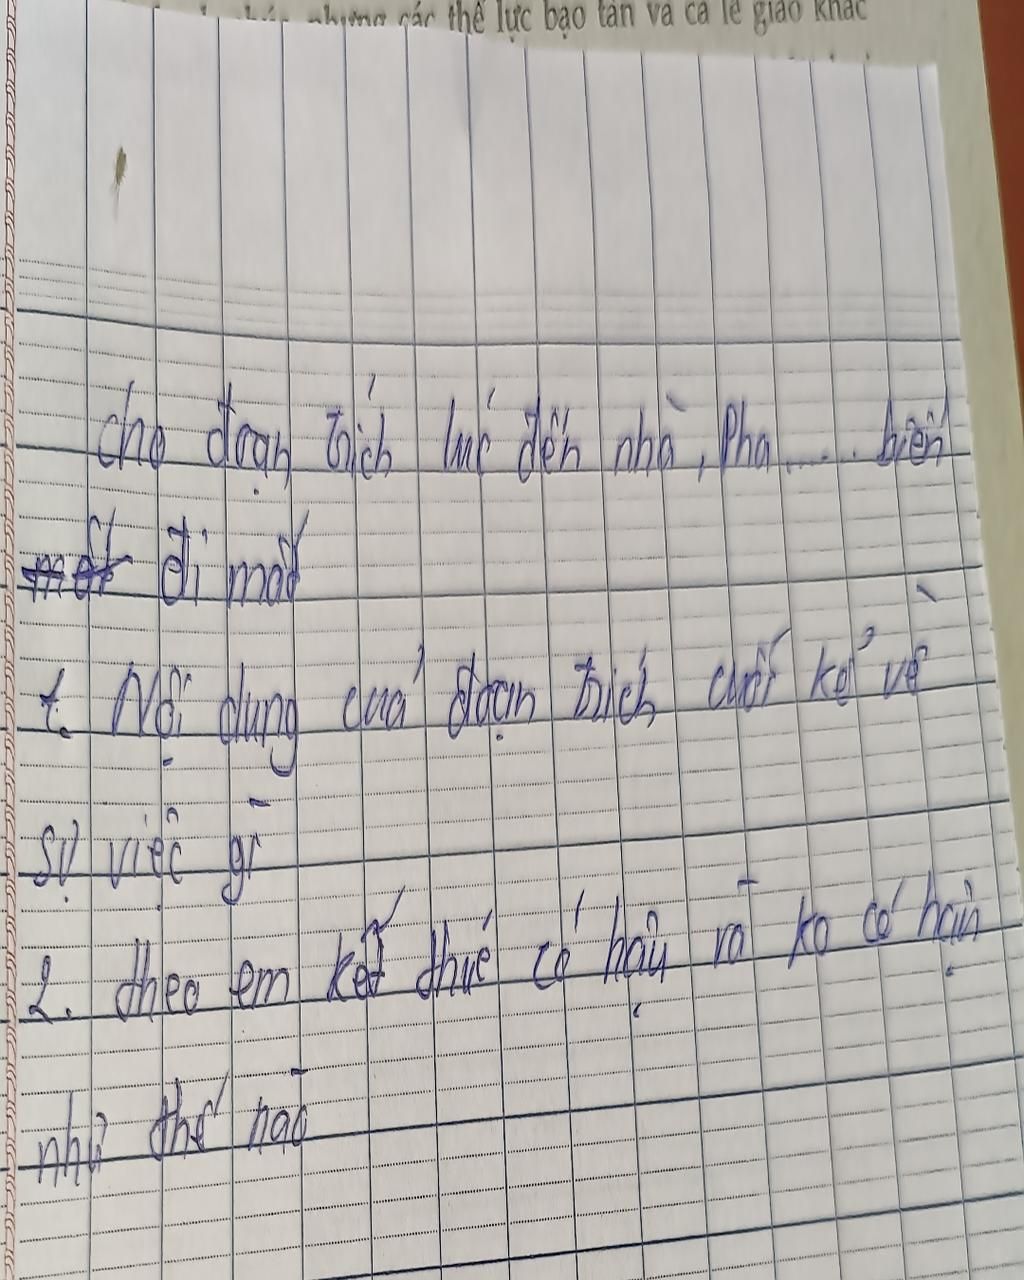 nhưng các thế lực bạo tàn và cả lễ giáo khắc
cho đoạn trích lúc đến nhà, Pha ..... biến
một đi mất
1. Nội dung của đoạn trích cuối kể về
sự việc gì
2. theo em kết thúc có hậu và ko có hậu
như thế nào